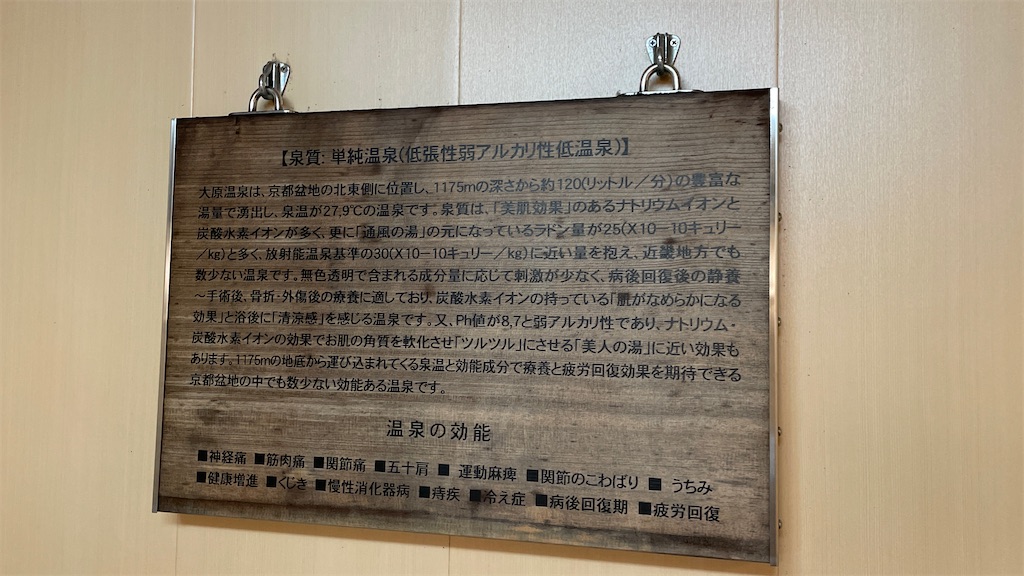 【泉質: 単純温泉(低張性弱アルカリ性低温泉)】
大原温泉は、京都盆地の北東側に位置し、1175mの深さから約120(リットル／分)の豊富な
湯量で湧出し、泉温が27,9℃の温泉です。泉質は、「美肌効果」のあるナトリウムイオンと
炭酸水素イオンが多く、更に「通風の湯」の元になっているラドン量が25(X10－10キュリー
／kg)と多く、放射能温泉基準の30(X10－10キュリー／kg)に近い量を抱え、近畿地方でも
数少ない温泉です。無色透明で含まれる成分量に応じて刺激が少なく、病後回復後の静養
～手術後、骨折・外傷後の療養に適しており、炭酸水素イオンの持っている「肌がなめらかになる
効果」と浴後に「清涼感」を感じる温泉です。又、Ph値が8,7と弱アルカリ性であり、ナトリウム・
炭酸水素イオンの効果でお肌の角質を軟化させ「ツルツル」にさせる「美人の湯」に近い効果も
あります。1175mの地底から運び込まれてくる泉温と効能成分で療養と疲労回復効果を期待できる
京都盆地の中でも数少ない効能ある温泉です。
温泉の効能
■神経痛 ■筋肉痛 ■関節痛 ■五十肩 ■ 運動麻痺 ■関節のこわばり ■ うちみ
■健康増進 ■くじき ■慢性消化器病 ■痔疾 ■冷え症 ■病後回復期 ■疲労回復